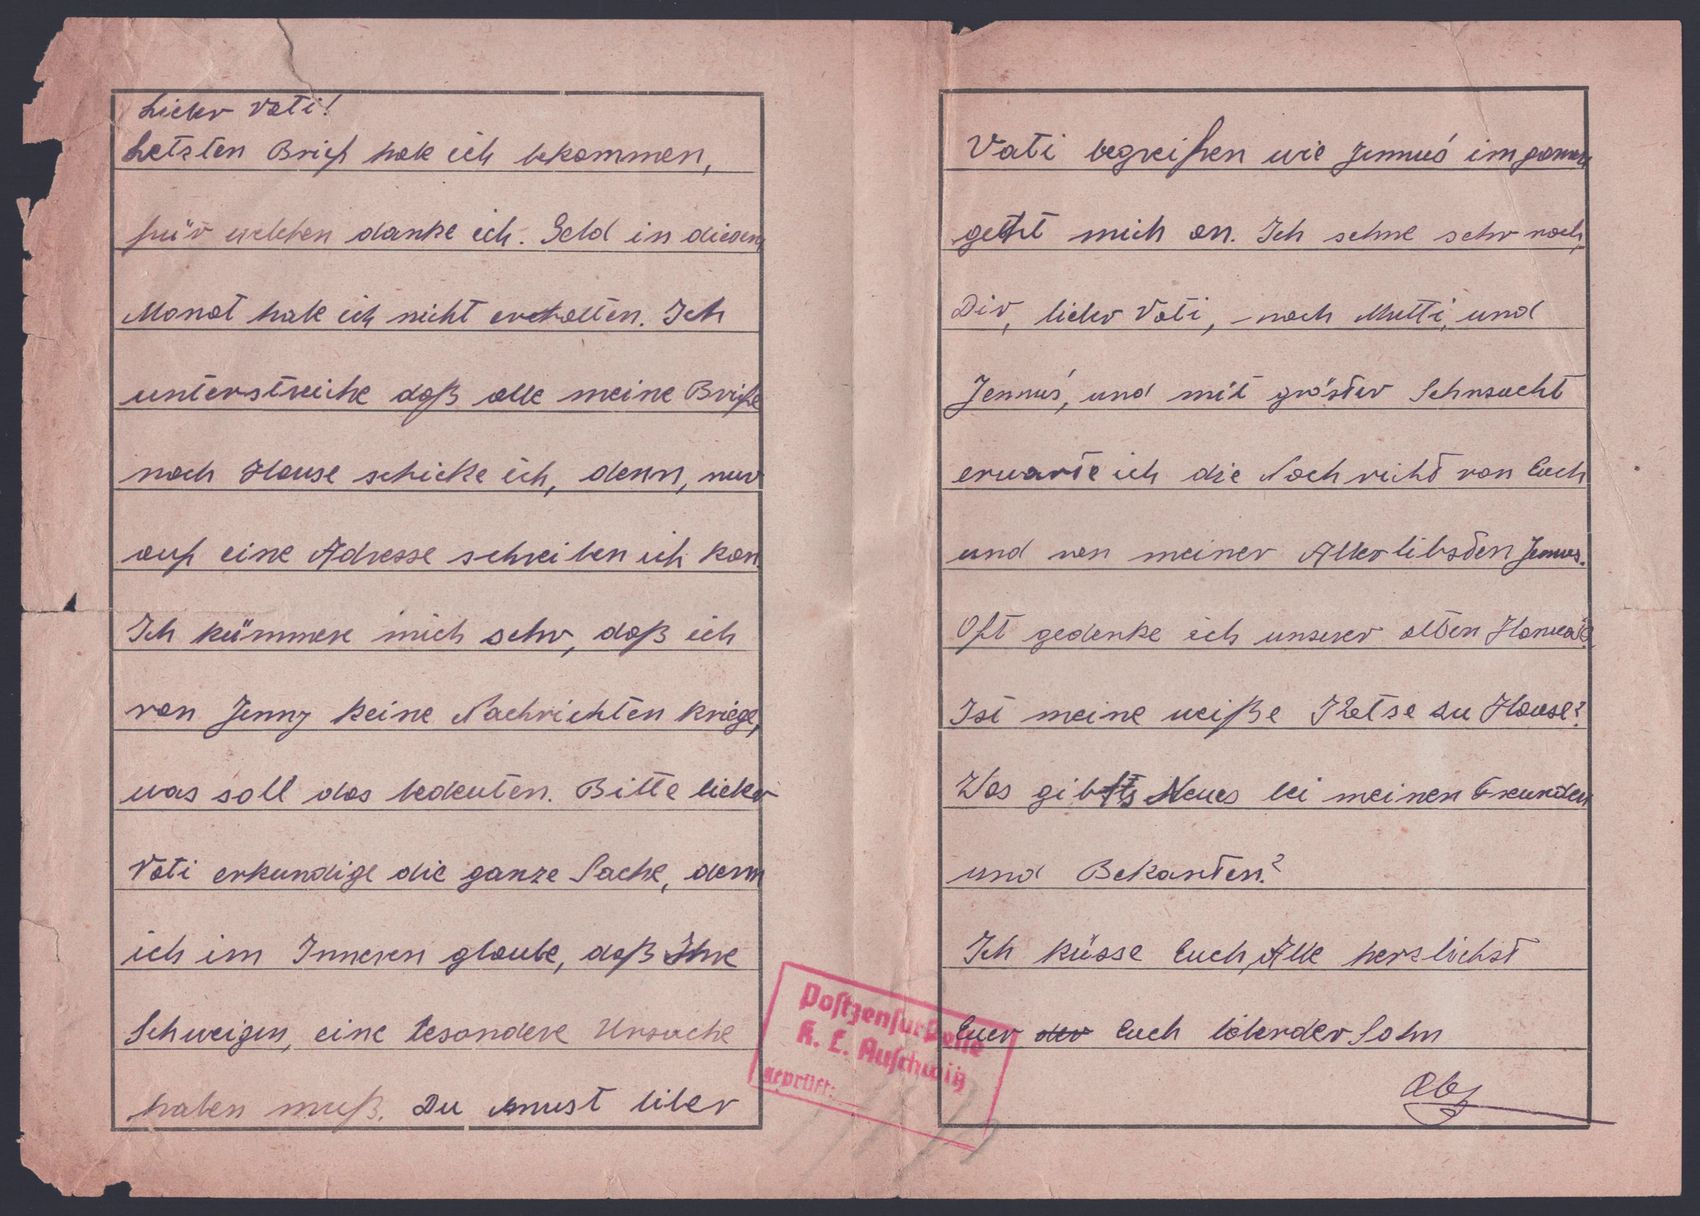 Lieber Vati!
Letzten Brief habe ich bekommen,
für welchen danke ich. Geld in diesem
Monat habe ich nicht erhalten. Ich
unterstreiche daß alle meine Briefe
nach Hause schicke ich, denn, nur
auf eine Adresse schreiben ich kan
Ich kümmere mich sehr, daß ich
von Jenny keine Nachrichten kriege,
was soll das bedeuten. Bitte lieber
Vati erkundige die ganze Sache, denn
ich im Inneren glaube, daß Ihre
Schweigen, eine besondere Ursache
haben muß. Du must liber
Vati begreifen wie Jennuś im
geht mich an. Ich sehne sehr nach
Dir, lieber Vati, nach Mutti, und
Jennuś, und mit gröster Sehnsucht
erwarte ich die Nachricht von Euch
und von meiner Allerlibsten Jennus.
Oft gedenke ich unserer alten
Ist meine weiße Katse zu Hause?
Was gibts Neues bei meinen Freunden
und Bekanten?
Ich küsse Euch Alle herzlichst
Euer der Euch libender Sohn
Postzensurstelle
K. L. Auschwitz
geprüft: